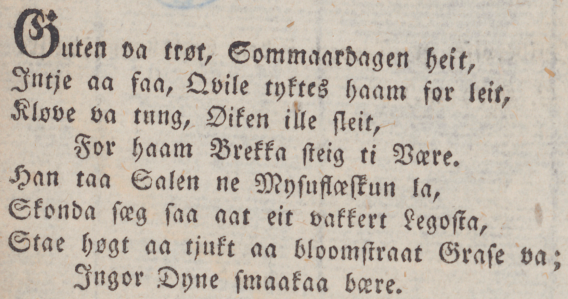 Guten va trøt, Sommaardagen heit,
Intje aa faa, Qvile tyktes haam for leit,
Kløve va tung, Øiken ille sleit,
For haam Brekka steig ti Være.
Han taa Salen ne Mysuflæskun la,
Skonda sæg saa aat eit vakkert Legosta,
Stae høgt aa tjukt aa bloomstraat Grase va;
Ingor Dyne smaakaa bære.